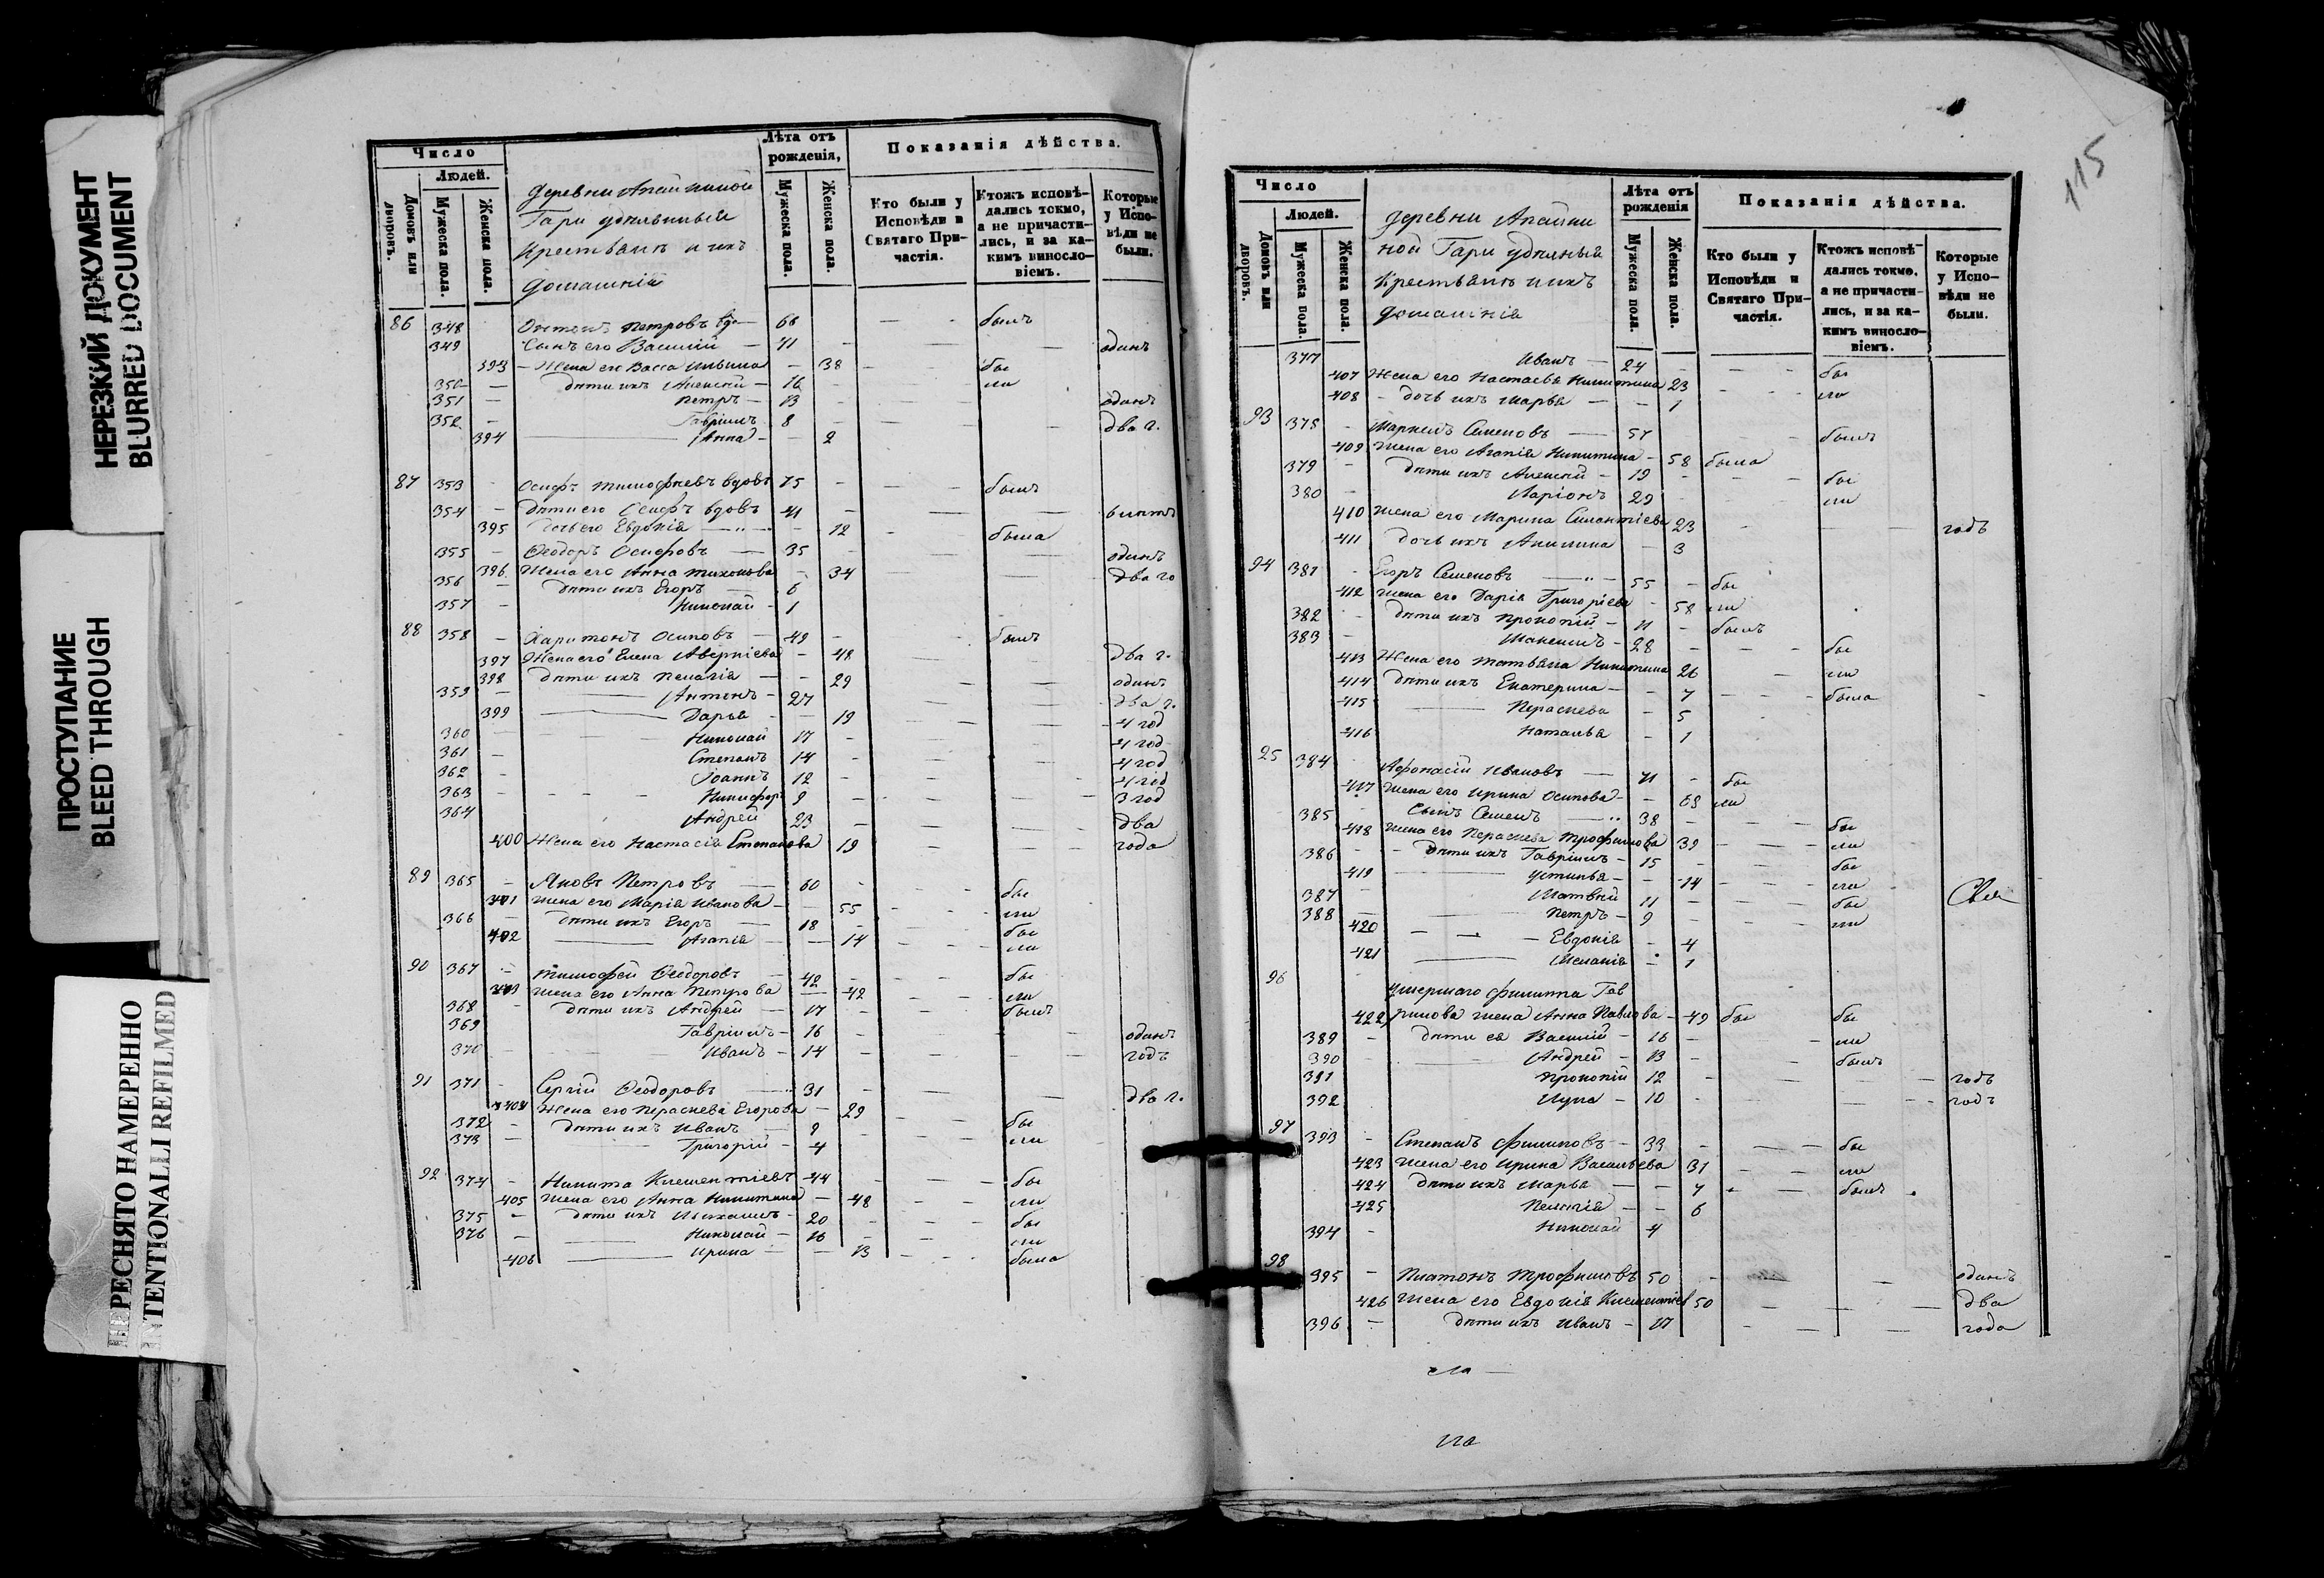 НЕРЕЗКИЙ ДОКУМЕНТ
BLURRED DOCUMENT
ПРОСТУПАНИЕ
BLEED THROUGH
ПЕРЕСНЯТО НАМЕРЕННО
INTENTIONALLI REFILMED
Число
Людей.
Домовъ или дворовъ.
Мужеска пола.
Женска пола.
деревни Апайкиной
Гари удѣльныя
крестьянъ и ихъ
домашнiи
Лѣта отъ рожденія,
Мужеска пола.
Женска пола.
Показанія дѣйства.
Кто были у Исповѣди и Святаго Причастія.
Ктожъ исповѣдались токмо, а не причастились, и за какимъ винословіемъ.
Которые у Исповѣди не были.
86 348 Антонъ Петровъ вдо 66 былъ
349 Сынъ его Василій 41 одинъ
393 Жена его Васса Ильина 38 бы
350 дѣти ихъ Алексѣй 16 ли
351 Петръ 13 одинъ
352 Гавріилъ 8 два г.
394 Анна 2
87 353 Осифъ Тимофѣевъ вдовъ 75 былъ
354 дѣти его Осифъ вдовъ 41 6 лѣтъ
395 дочь его Евдокія 12 была
355 Ѳеодоръ Осифовъ 35 одинъ
396 Жена его Анна Тихонова 34 два го
356 дѣти ихъ Егоръ 6
357 Николай 1
88 358 Харитонъ Осиповъ 49 былъ
397 Жена его Елена Аверкіева 48 два г.
398 дѣти ихъ Пелагія 29 одинъ
359 Антонъ 27 два г.
399 Дарья 19 4 год
360 Николай 17 4 год
361 Степанъ 14 4 год
362 Іоаннъ 12 4 год
363 Никифоръ 9 3 год
364 Андрей 23 два
400 Жена его Настасія Степанова 19 года
89 365 Яковъ Петровъ 60 бы
401 Жена его Марія Иванова 55 ли
366 дѣти ихъ Егоръ 18 бы
402 Агапія 14 ли
90 367 Тимофей Ѳеодоровъ 42 бы
403 Жена его Анна Петрова 42 ли
368 дѣти ихъ Андрей 17 былъ
369 Гавріилъ 16 одинъ
370 Иванъ 14 годъ
91 371 Сергій Ѳеодоровъ 31 два г.
404 Жена его Параскева Егорова 29
372 дѣти ихъ Иванъ 9 бы
373 Григорій 4 ли
92 374 Никита Клементіевъ 44 бы
405 Жена его Анна Никитина 48 ли
375 дѣти ихъ Михаилъ 20 бы
376 Николай 16 ли
406 Ирина 13 была
115
Число
Людей.
Домовъ или дворовъ.
Мужеска пола.
Женска пола.
деревни Апайки
ной Гари удѣльныя
Крестьянъ и ихъ
домашнія
Лѣта отъ рожденія
Мужеска пола.
Женска пола.
Показанія дѣйства.
Кто были у Исповѣди и Святаго Причастія.
Ктожъ исповѣдались токмо, а не причастились, и за какимъ винословіемъ.
Которые у Исповѣди не были.
377 Иванъ 24 бы
407 Жена его Настасья Никитина 23 ли
408 дочь ихъ Марья 1
93 378 Маркелъ Семеновъ 57 былъ
409 Жена его Агапія Никитина 58 была
379 дѣти ихъ Алексѣй 19 бы
380 Ларіонъ 29 ли
410 Жена его Марина Силантіева 23 годъ
411 дочь ихъ Акилина 3
94 381 Егоръ Семеновъ 55 бы
412 Жена его Дарія Григоріева 58 ли
382 дѣти ихъ Прокопій 11 былъ
383 Максимъ 28 бы
413 Жена его Татьяна Никитина 26 ли
414 дѣти ихъ Екатерина 7 была
415 Параскева 5
416 Наталья 1
95 384 Афонасій Ивановъ 71 бы
417 Жена его Ирина Осипова 69 ли
385 Сынъ Семенъ 38 бы
418 Жена его Параскева Трофимова 39 ли
386 дѣти ихъ Гавріилъ 15 бы
419 Устинья 14 ли
387 Матвѣй 11 бы
388 Петръ 9 ли
420 Евдокія 4
421 Меланія 1
96 Умершаго Филиппа Гав
422 рилова жена Анна Павлова 49 бы бы
389 дѣти ея Василій 16 ли
390 Андрей 13 былъ
391 Прокопій 12 годъ
392 Лука 10 годъ
97 393 Степанъ Филиповъ 33 бы
423 Жена его Ирина Васильева 31 ли
424 дѣти ихъ Марья 7 былъ
425 Пелагія 6
394 Николай 4
98 395 Платонъ Трофимовъ 50 одинъ
426 Жена его Евдокія Клементіев 50 два
396 дѣти ихъ Иванъ 17 года